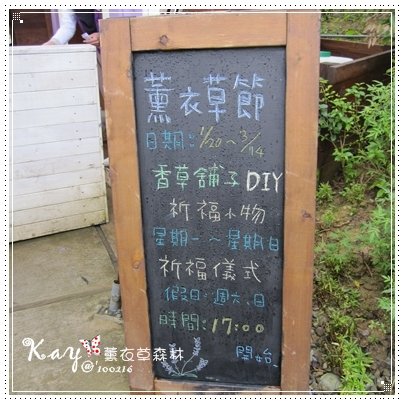 薰衣草節
日期:1/20~3/14
香草舖子DIY
祈福小物
星期一~星期日
祈福儀式
假日:週六、日
時間:17:00
開始
Kay
薰衣草森林
@'100216